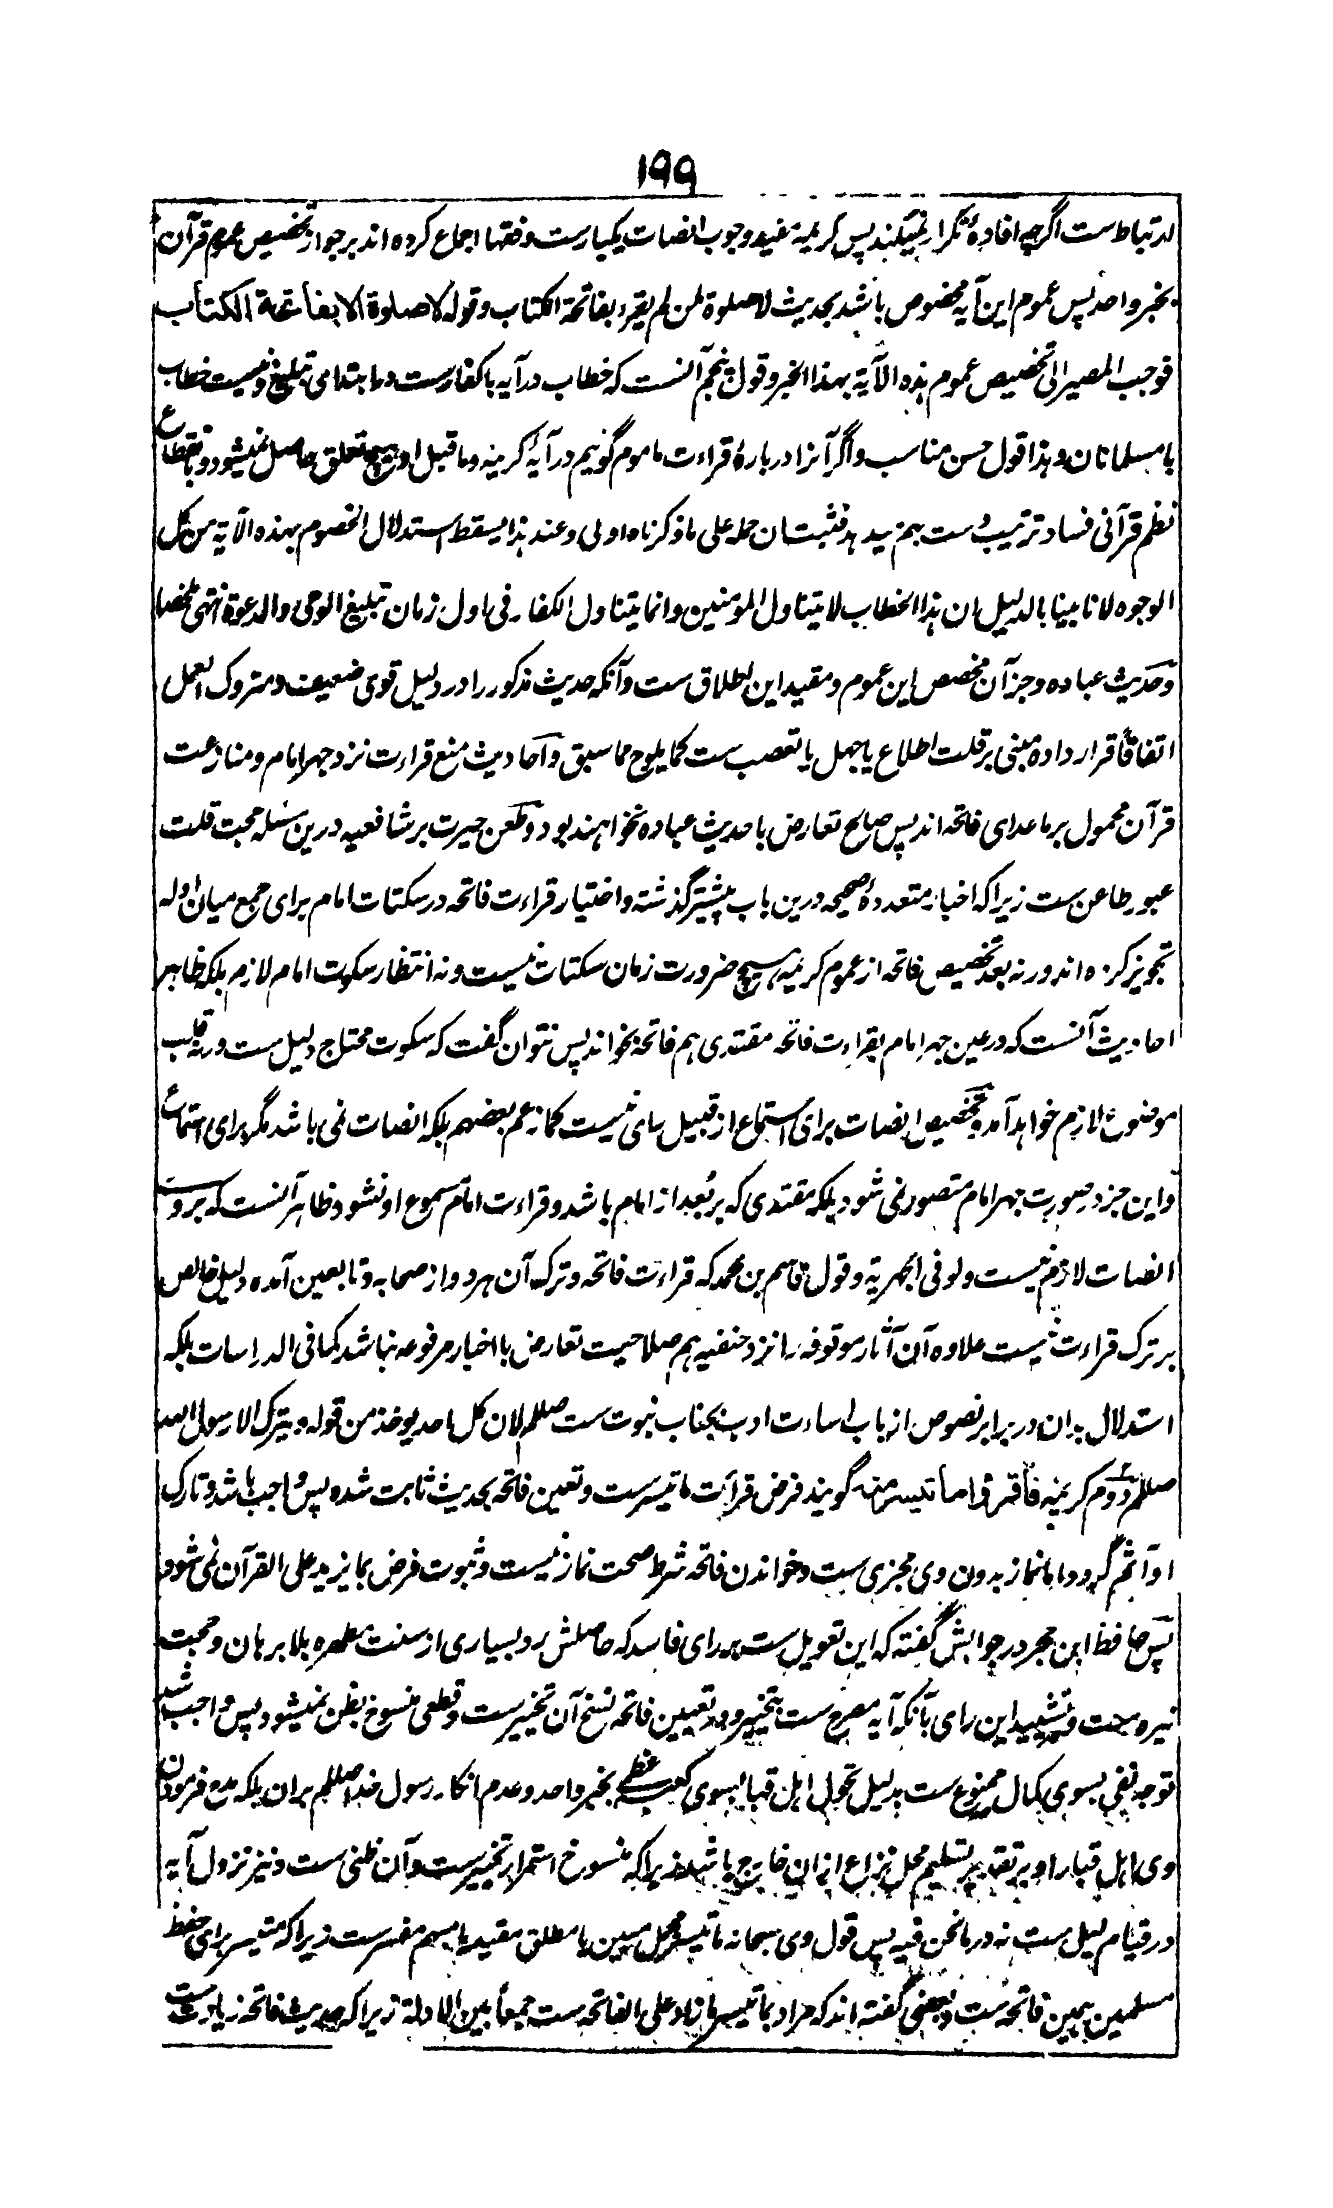 ۱۹۹
ارتباط ست اگرچه افادهٔ تکرار نمیکند پس کریمه مفید وجوب انصات یکبارست و فقها اجماع کرده اند بر جواز تخصیص عموم قرآن
بخبر واحد پس عموم این آیه مخصوص باشد بحدیث لا صلوة لمن لم یقرء بفاتحة الکتاب و قوله لا صلوة الا بفاتحة الکتاب
فوجب المصیر الی تخصیص عموم هذه الآیة بهذا الخبر و قول پنجم آنست که خطاب در آیه با کفارست در ابتدای تبلیغ و نیست خطاب
با مسلمانان و هذا قول حسن مناسب و اگر آنرا دربارهٔ قراءت ماموم گوییم در آیهٔ کریمه و ما قبل او هیچ تعلق حاصل نمیشود و انقطاع
نظم قرآنی فساد ترتیب ست بهم میدهد فثبت ان حمله علی ما ذکرناه اولی و عند هذا یسقط استدلال الخصوم بهذه الآیة من کل
الوجوه لانا بینا بالدلیل ان هذا الخطاب لا یتناول المؤمنین و انما یتناول الکفار فی اول زمان تبلیغ الوحی والدعوة انتهی ملخصا
وحدیث عباده و جز آن مخصص این عموم و مقید این اطلاق ست و آنکه حدیث مذکور را در دلیل قوی ضعیف و متروک العمل
اتفاقا قرار داده مبنی بر قلت اطلاع یا جهل یا تعصب ست کما یلوح مما سبق و احادیث منع قراءت نزد جهر امام و منازعت
قرآن محمول بر ما عدای فاتحه اند پس صالح تعارض با حدیث عباده نخواهند بود و طعن حیرت بر شافعیه درین مسئله محبت قلت
عبور طاعن ست زیرا که اخبار متعددهٔ صحیحه درین باب پیشتر گذشته و اختیار قراءت فاتحه در سکتات امام برای جمع میان ادله
تجویز کرده اند ورنه بعد تخصیص فاتحه از عموم کریمه هیچ ضرورت زمان سکتات نیست و نه انتظار سکوت امام لازم بلکه ظاهر
احادیث آنست که در عین جهر امام بقراءت فاتحه مقتدی هم فاتحه بخواند پس نتوان گفت که سکوت محتاج دلیل ست ورنه قلب
موضوع لازم خواهد آمد و تخصیص انصات برای استماع از قبیل رای نیست کما زعم بعضهم بلکه انصات نمی باشد مگر برای استماع
و این جز در صورت جهر امام متصور نمی شود بلکه مقتدی که بر بُعد از امام باشد و قراءت امام مسموع او نشود ظاهر آنست که بر وی
انصات لازم نیست ولو فی الجهریة و قول قاسم بن محمد که قراءت فاتحه و ترک آن هر دو از صحابه و تابعین آمده دلیل خالص
بر ترک قراءت نیست علاوه آن آثار موقوفه را نزد حنفیه هم صلاحیت تعارض با اخبار مرفوعه نباشد کما فی الدراسات بلکه
استدلال بدان در برابر نصوص از باب اساءت ادب بجناب نبوت ست صللم لان کل احد یوخذ من قوله و یترک الا رسول الله
صللم دوم کریمه فاقرؤا ما تیسر منه گویند فرض قراءت ما تیسرست و تعین فاتحه بحدیث ثابت شده پس واجب باشد و تارک
او آثم گردد اما نماز بدون وی مجزی ست و خواندن فاتحه شرط صحت نماز نیست و ثبوت فرض بما یزید علی القرآن نمی شود
پس حافظ ابن حجر در جوابش گفته که این تعویل ست بر رای فاسد که حاصلش رد بسیاری از سنت مطهره بلا برهان و حجت
نیره ست و تشیید این رای بآنکه آیه مصرح ست بتخییر و در تعیین فاتحه نسخ آن تخییرست و قطعی منسوخ بظن نمیشود پس واجب شد
توجه نفی بسوی کمال ممنوع ست بدلیل تحول اهل قبا بسوی کعبه عظمی بخبر واحد و عدم انکار رسول خدا صللم بران بلکه مدح فرمودن
وی اهل قبا را و بر تقدیر تسلیم محل نزاع ازان خارج باشد زیرا که منسوخ استمرار تخییرست و آن ظنی ست و نیز نزول آیه
در قیام لیل ست نه در ما نحن فیه پس قول وی سبحانه ما تیسر مجمل مبین یا مطلق مقید یا مبهم مفسرست زیرا که متیسر برای حفظ
مسلمین همین فاتحه است و بعضی گفته اند که مراد بما تیسر ما زاد علی الفاتحه ست جمعا بین الادلة زیرا که حدیث فاتحه زیادت ست